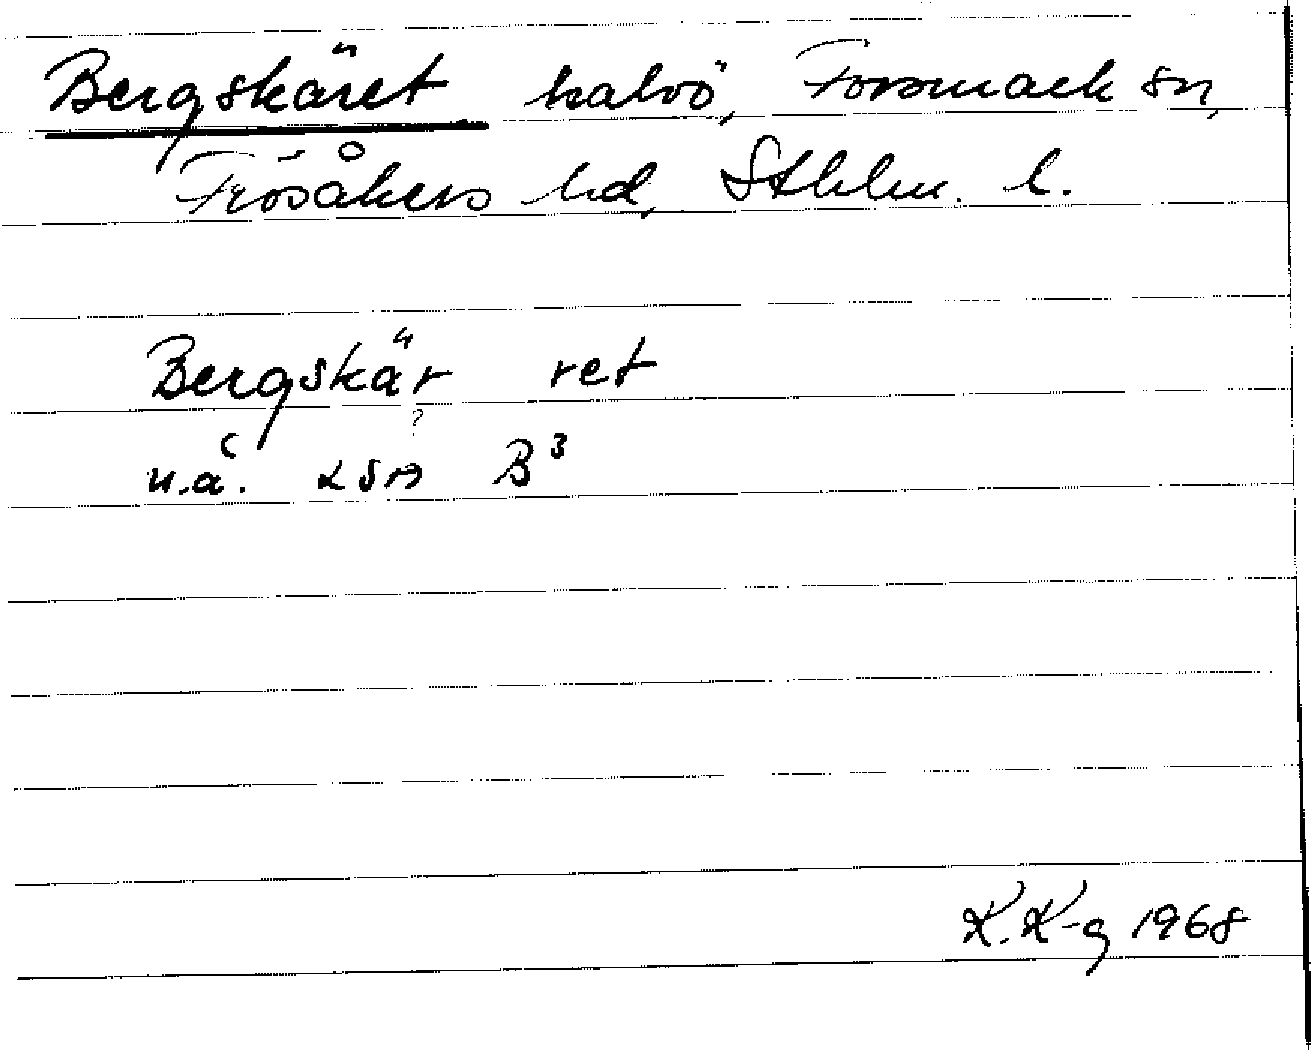 Bergskäret halvö, Forsmark sn,
Frösåkers hd, Sthlm. l.
Bergskär ret
u.å. LSA B³
K.K-g 1968